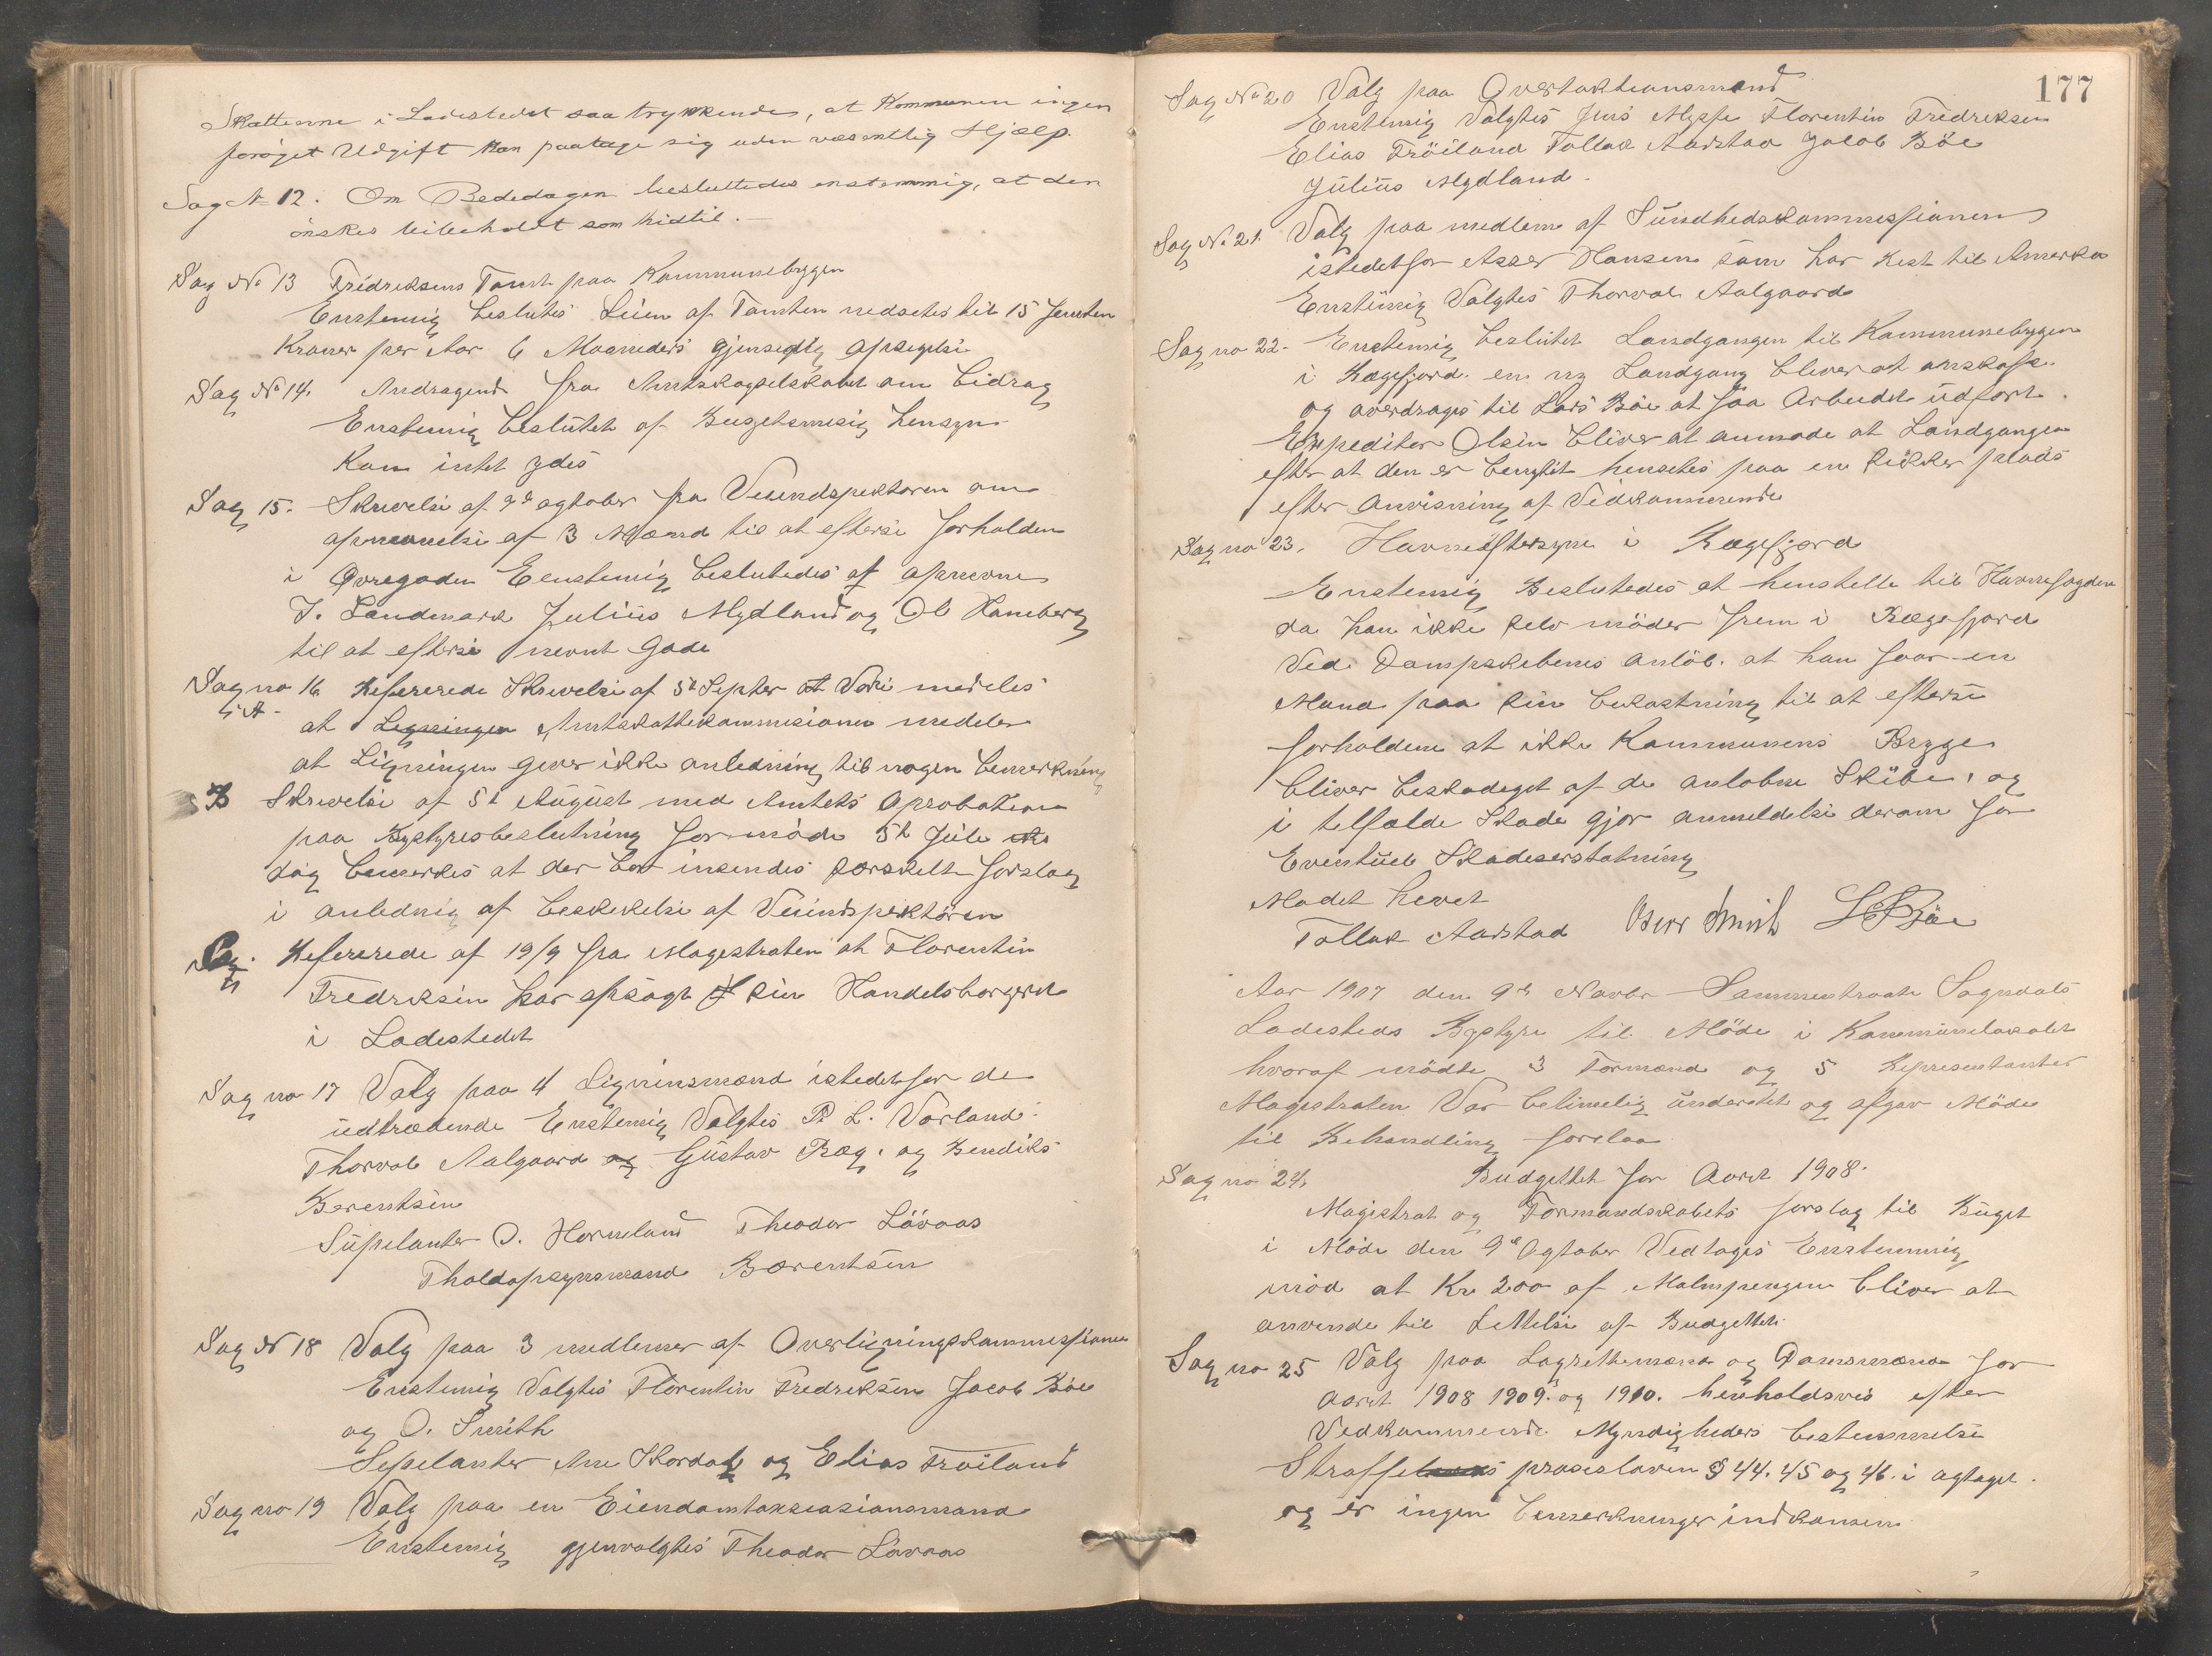 Skatterne i Ladestedet saa trykkende, at Kommunen ingen
forøget Udgift kan paatage sig uden væsentlig Hjælp.
Sag № 12. Om Bededagen besluttedes enstemmig, at den
ønskes bibeholdt som hidtil.—
Sag No 13 Fridreksens Tomt paa Kommunebryggen
Enstemig beslutes Leien af Tomten nedsettes til 15 femten
Kroner per Aar 6 Maaneders gjensedig opsigelse
Sag No 14. Andragende fra Amtskogselskabet om bidrag
Enstemig beslutet af Bugetsmesig hensyn
kan intet ydes
Sag 15. Skrivelse af 9de agtober fra Veiindspektøren om
opnevnelse af 3 Mænd til at efterse forholden
i Øvregaden Eenstemig beslutedes at opnevne
T. Landmark Julius Mydland og Ol Hamberg
til at efterse nevnt gade
Sag no 16 Refererede Skrivelse af 5te Septer
A
at Ligningen Amtskattekommisionen meddeler
at Ligningen gever ikke anledning til nogen bemerkning
B Skrivelse af 5te August med Amtets Aprobation
paa Bystyresbeslutning for møde 5te Juli
dog bemerkes at der bør insendes særskelt forslag
i anledning af beskikelse af Veiindspektøren
Refererede af 19/9 fra Magestraten at Florentin
Fredreksen har opsagt sin Handelsborgerret
i Ladestedet
Sag no 17 Valg paa 4 Ligninsmænd istedetfor de
udtrædende Enstemig Valgtes P. L. Vorland
Thorvald Aalgaard og Gustav Ræg. og Bendiks
Berentsen
Supelanter O. Horneland Theodor Løvaas
Tholdopsynsmand Børentsen
Sag N 18 Valg paa 3 medlemer af Overligningskommessionen
Enstemig Valgtes Florentin Fredreksen Jacob Bøe
og O. Smith
Sepelanter Ane Skordal og Elias Frøiland
Sag no 19 Valg paa en Eiendomstaksasionsmand
Enstemig gjenvalgtes Theodor Løvaas
177
Sag No 20 Valg paa Overtakstionsmænd
Enstemig Valgtes Jens Mysse Florentin Fredreksen
Elias Frøiland Tollak Aarstad Jacob Bøe
Julius Mydland.
Sag No 21 Valg paa medlem af Sundhedskommessionen
istedetfor Asser Hansen som har rest til Amerka
Enstemig Valgtes Thorval Aalgaard
Sag no 22. Enstemig beslutet Landgangen til Kommunebryggen
i Rægefjord. en ny Landgang bliver at anskafe.
og overdrages til Lars Bøe at faa Arbeidet udført.
Expeditør Olsen bliver at anmode at Landgangen
efter at den er benyttet hensettes paa en sikker plads
efter Anvisning af Vedkommende
Sag no 23. Havneeftersyn i Rægefjord
Enstemig Beslutedes at henstelle til Havnefogden
da han ikke selv møder frem i Rægefjord
Ved Dampskebenes anløb. at han faar en
Mand paa sin bekostning til at efterse
forholdene at ikke Kommunens Brygge
bliver beskadeget af de anløbne Skibe, og
i telfælde Skade gjør anmeldelse derom for
Eventuel Skadeserstatning
Mødet hevet
Tollak Aarstad Oscar Smith L. Bøe
Aar 1907 den 9de Novbr Sammentraate Sogndals
Ladesteds Bystyre til Møde i Kommunelokalet
hvoraf mødte 3 Formænd og 5 Representanter
Magestraten Var betimelig underettet og afgav Møde
til Behandling forelaa
Sag no 24. Budgettet for Aaret 1908.
Magistrat og Formandskabets forslag til Buget
i Møde den 9de Ogtober Vedtoges Enstemmig
mod at Kr 200 af Malmpengene bliver at
anvende til Lettelse af Budgettet.
Sag no 25 Valg paa Lagrettemænd og Domsmænd for
Aaret 1908 1909. og 1910. henholdsves efter
Vedkommende Myndigheders bestemmelse
Straffe prosesloven § 44. 45 og 46. i agtaget.
og er ingen bemerkninger indkomen